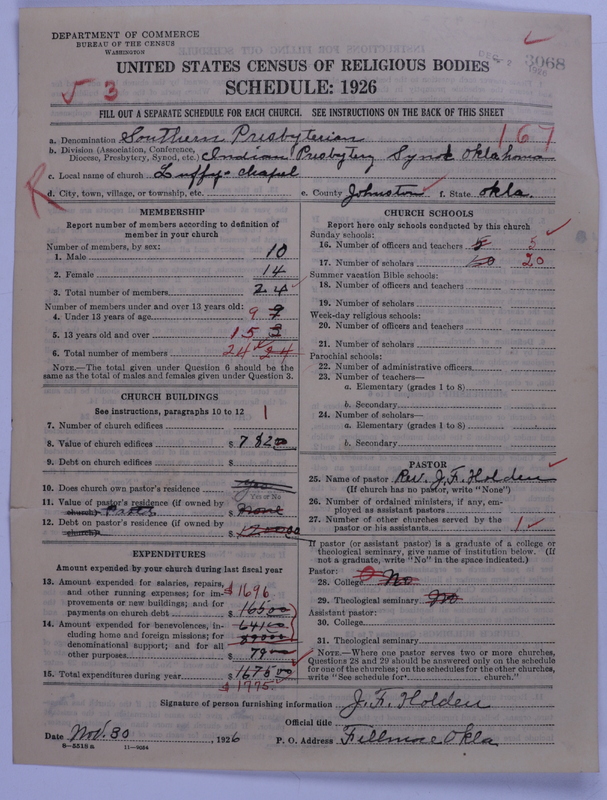 DEPARTMENT OF COMMERCE
BUREAU OF THE CENSUS
WASHINGTON
DEC 7 1926
3068
UNITED STATES CENSUS OF RELIGIOUS BODIES
SCHEDULE: 1926
53
FILL OUT A SEPARATE SCHEDULE FOR EACH CHURCH. SEE INSTRUCTIONS ON THE BACK OF THIS SHEET
167
a. Denomination Southern Presbyterian
b. Division (Association, Conference, Diocese, Presbytery, Synod, etc.) Indian Presbytery Synod Oklahoma
c. Local name of church Luffy-chapel
R
d. City, town, village, or township, etc. e. County Johnston f. State Okla.
MEMBERSHIP
Report number of members according to definition of
member in your church
Number of members, by sex:
1. Male 10
2. Female 14
3. Total number of members 24
Number of members under and over 13 years old:
4. Under 13 years of age 9
5. 13 years old and over 15 3
6. Total number of members 24 24
NOTE.—The total given under Question 6 should be the
same as the total of males and females given under Question 3.
CHURCH BUILDINGS
See instructions, paragraphs 10 to 12
7. Number of church edifices 1
8. Value of church edifices $ 782 00
9. Debt on church edifices $
10. Does church own pastor's residence yes
Yes or No
11. Value of pastor's residence (if owned by
church) $ none
12. Debt on pastor's residence (if owned by
church) $
EXPENDITURES
Amount expended by your church during last fiscal year
13. Amount expended for salaries, repairs,
and other running expenses; for im-
provements or new buildings; and for
payments on church debt $1696
14. Amount expended for benevolences, in-
cluding home and foreign missions; for
denominational support; and for all
other purposes $ 79 00
15. Total expenditures during year $ 1675 00
$ 1775
CHURCH SCHOOLS
Report here only schools conducted by this church
Sunday schools:
16. Number of officers and teachers 5 5
17. Number of scholars 20
Summer vacation Bible schools:
18. Number of officers and teachers
19. Number of scholars
Week-day religious schools:
20. Number of officers and teachers
21. Number of scholars
Parochial schools:
22. Number of administrative officers
23. Number of teachers—
a. Elementary (grades 1 to 8)
b. Secondary
24. Number of scholars—
a. Elementary (grades 1 to 8)
b. Secondary
PASTOR
25. Name of pastor Rev. J. F. Holden
(If church has no pastor, write "None")
26. Number of ordained ministers, if any, em-
ployed as assistant pastors
27. Number of other churches served by the
pastor or his assistants 1
If pastor (or assistant pastor) is a graduate of a college or
theological seminary, give name of institution below. (If
not a graduate, write "No" in the space indicated.)
Pastor:
28. College No
29. Theological seminary No
Assistant pastor:
30. College
31. Theological seminary
NOTE.—Where one pastor serves two or more churches,
Questions 28 and 29 should be answered only on the schedule
for one of the churches; on the schedules for the other churches,
write "See schedule for church."
Signature of person furnishing information J. F. Holden
Official title
Date Nov. 30, 1926 P. O. Address Fillmore Okla
8—5518 a 11—9054